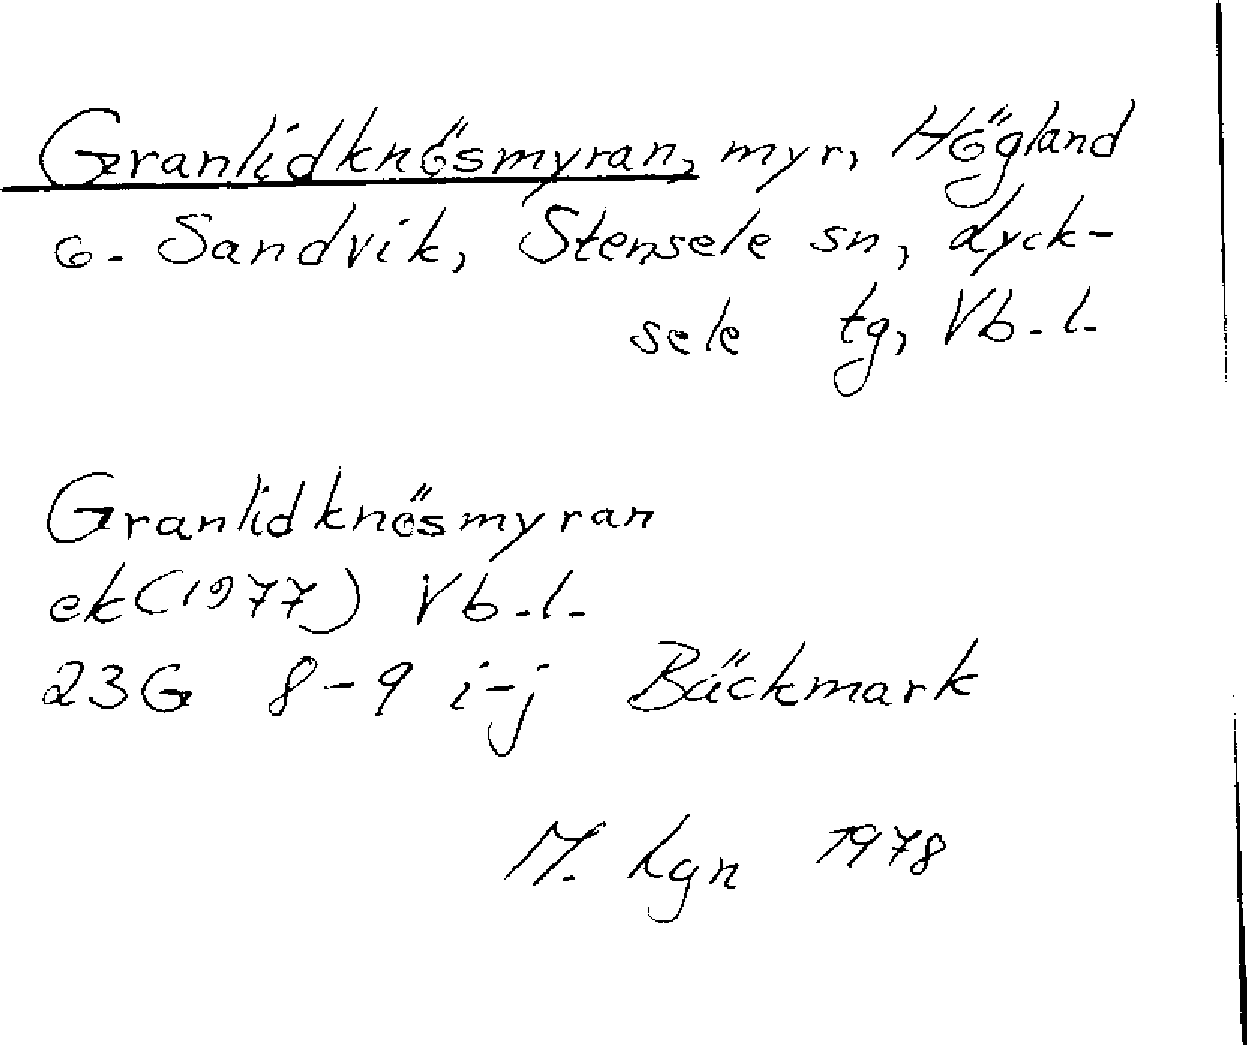 Granlidknösmyran, myr, Högland
o. Sandvik, Stensele sn, Lyck-
sele tg, Vb.l.
Granlidknösmyran
ek (1977) Vb.l.
23G 8-9 i-j Bäckmark
M. Lgn 1978